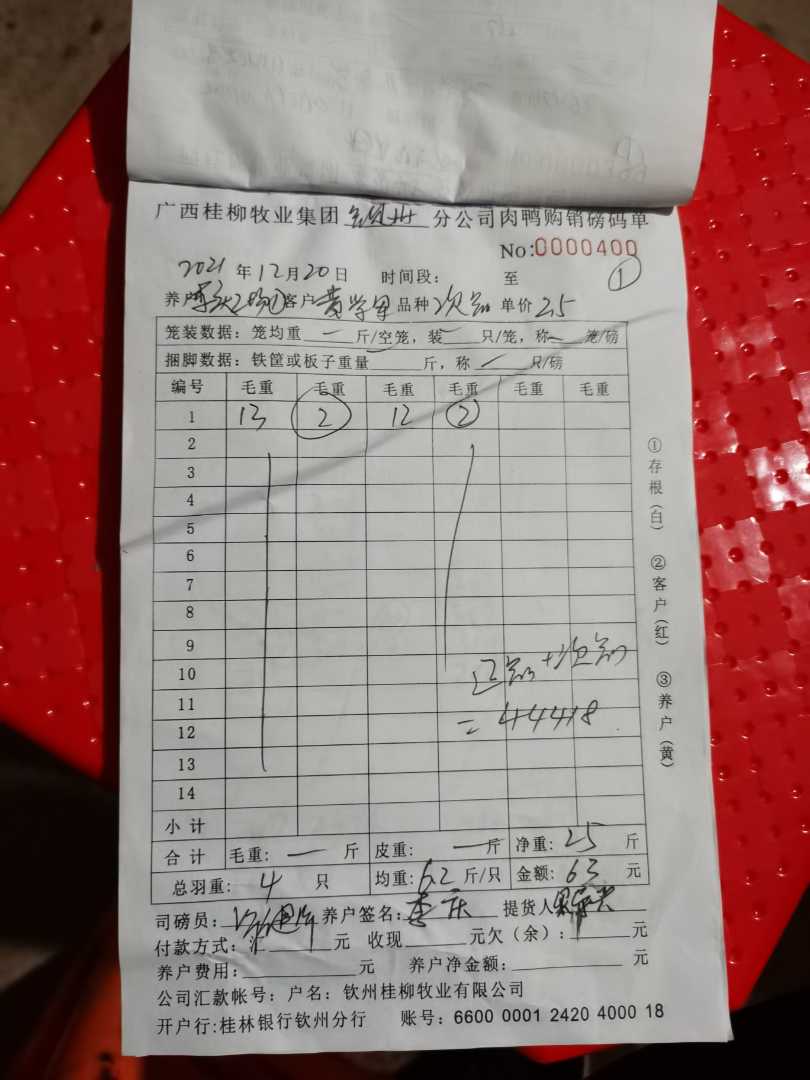 广西桂柳牧业集团 钦州 分公司肉鸭购销磅码单
No:0000400
①
2021 年 12 月 20 日 时间段: 至
养户 客户 黄学军 品种 次品 单价 2.5
笼装数据: 笼均重 — 斤/空笼, 装 — 只/笼, 称 — 笼/磅
捆脚数据: 铁筐或板子重量 斤, 称 / 只/磅
编号 毛重 毛重 毛重 毛重 毛重 毛重
1 13 2 12 2
2
3
4
5
6
7
8
9
10
11
12
13
14
正品+次品
=44418
小计
合计 毛重: — 斤 皮重: — 斤 净重: 25 斤
总羽重: 4 只 均重: 6.2 斤/只 金额: 63 元
司磅员: 养户签名: 李庆 提货人
付款方式: 汇 元 收现 元欠(余): 元
养户费用: 元 养户净金额: 元
公司汇款帐号: 户名: 钦州桂柳牧业有限公司
开户行:桂林银行钦州分行 账号: 6600 0001 2420 4000 18
①存根(白) ②客户(红) ③养户(黄)